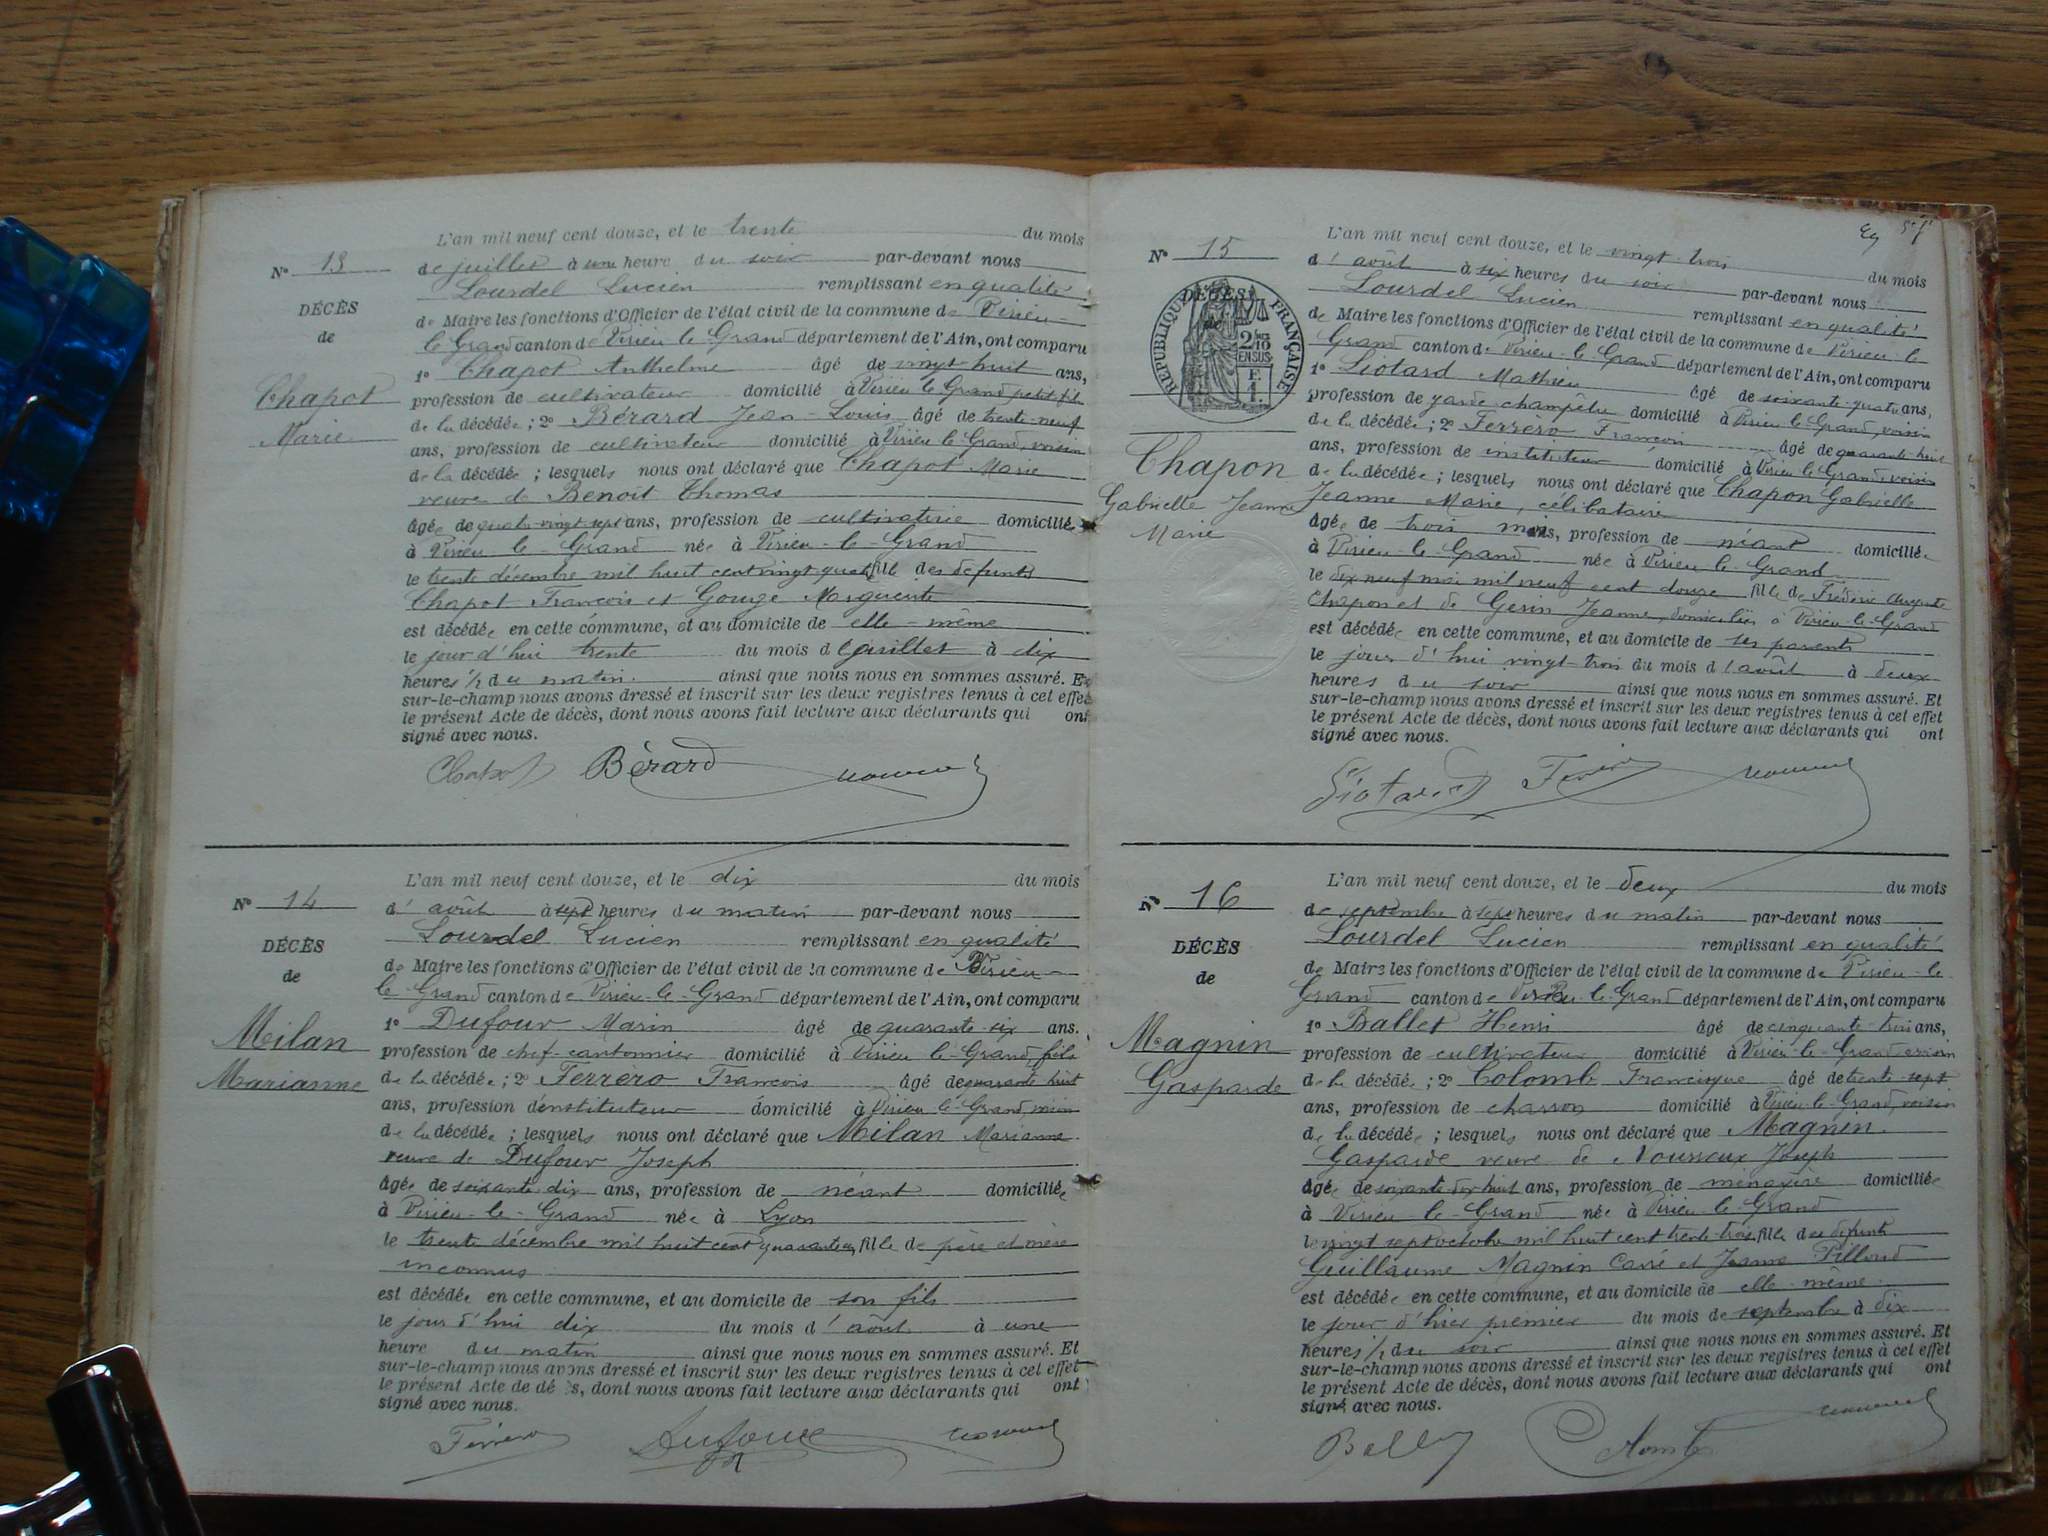 L'an mil neuf cent douze, et le trente du mois
N° 13
de juillet à une heure du soir par-devant nous
Lourdel Lucien remplissant en qualité
DÉCÈS
de Maire les fonctions d'Officier de l'état civil de la commune de Virieu-
de
le Grand canton de Virieu le Grand département de l'Ain, ont comparu
1° Chapot Anthelme âgé de vingt-huit ans,
Chapot
profession de cultivateur domicilié à Virieu le Grand petit-fils
Marie
de la décédée ; 2° Bérard Jean-Louis âgé de trente-neuf
ans, profession de cultivateur domicilié à Virieu le Grand, voisin
de la décédée ; lesquels nous ont déclaré que Chapot Marie
veuve de Benoit Thomas
âgée de quatre-vingt-sept ans, profession de cultivatrice domiciliée
à Virieu-le-Grand née à Virieu-le-Grand
le trente décembre mil huit cent vingt quatre fille des défunts
Chapot François et Gouge Marguerite
est décédée en cette commune, et au domicile de elle-même
le jour d'hui trente du mois de juillet à dix
heures ½ du matin. ainsi que nous nous en sommes assuré. Et
sur-le-champ nous avons dressé et inscrit sur les deux registres tenus à cet effet
le présent Acte de décès, dont nous avons fait lecture aux déclarants qui ont
signé avec nous.
Chapot Bérard
L'an mil neuf cent douze, et le dix du mois
N° 14
d'août à sept heures du matin par-devant nous
Lourdel Lucien remplissant en qualité
DÉCÈS
de Maire les fonctions d'Officier de l'état civil de la commune de Virieu-
de
le Grand canton de Virieu-le-Grand département de l'Ain, ont comparu
1° Dufour Marin âgé de quarante-six ans.
Milan
profession de chef-cantonnier domicilié à Virieu le-Grand, fils
Marianne
de la décédée ; 2° Ferrèro François âgé de quarante huit
ans, profession d'instituteur domicilié à Virieu-le-Grand, voisin
de la décédée ; lesquels nous ont déclaré que Milan Marianne
veuve de Dufour Joseph
âgée de soixante dix ans, profession de néant domiciliée
à Virieu-le-Grand née à Lyon
le trente décembre mil huit cent quarante un fille de père et mère
inconnus
est décédée en cette commune, et au domicile de son fils
le jour d'hui dix du mois d'août à une
heure du matin ainsi que nous nous en sommes assuré. Et
sur-le-champ nous avons dressé et inscrit sur les deux registres tenus à cet effet
le présent Acte de décès, dont nous avons fait lecture aux déclarants qui ont
signé avec nous.
Ferrero Dufour
L'an mil neuf cent douze, et le vingt-trois du mois
N° 15
d'août à six heures du soir par-devant nous
Lourdel Lucien remplissant en qualité
DÉCÈS
RÉPUBLIQUE FRANÇAISE
de Maire les fonctions d'Officier de l'état civil de la commune de Virieu-le
Grand canton de Virieu-le-Grand département de l'Ain, ont comparu
1° Liotard Mathieu âgé de soixante-quatre ans,
profession de garde-champêtre domicilié à Virieu le Grand, voisin
de la décédée ; 2° Ferrèro François âgé de quarante-huit
ans, profession de instituteur domicilié à Virieu-le-Grand, voisin
Chapon
de la décédée ; lesquels nous ont déclaré que Chapon Gabrielle
Gabrielle Jeanne
Jeanne Marie, célibataire
Marie
âgée de trois mois, profession de néant domiciliée
à Virieu-le-Grand née à Virieu-le-Grand
le dix neuf mai mil neuf cent douze fille de Frédéric Auguste
Chapon et de Gerin Jeanne, domiciliés à Virieu-le-Grand
est décédée en cette commune, et au domicile de ses parents
le jour d'hui vingt-trois du mois d'août à deux
heures du soir ainsi que nous nous en sommes assuré. Et
sur-le-champ nous avons dressé et inscrit sur les deux registres tenus à cet effet
le présent Acte de décès, dont nous avons fait lecture aux déclarants qui ont
signé avec nous.
Liotard
L'an mil neuf cent douze, et le deux du mois
N° 16
de septembre à sept heures du matin par-devant nous
Lourdel Lucien remplissant en qualité
DÉCÈS
de Maire les fonctions d'Officier de l'état civil de la commune de Virieu-le-
de
Grand canton de Virieu-le-Grand département de l'Ain, ont comparu
1° Ballet Henri âgé de cinquante-trois ans,
Magnin
profession de cultivateur domicilié à Virieu-le-Grand voisin
Gasparde
de la décédée ; 2° Colomb Francisque âgé de trente-sept
ans, profession de charron domicilié à Virieu-le-Grand, voisin
de la décédée ; lesquels nous ont déclaré que Magnin
Gasparde veuve de Joseph
âgée de soixante-dix-huit ans, profession de ménagère domiciliée
à Virieu-le-Grand née à Virieu-le-Grand
le vingt sept octobre mil huit cent trente trois fille des défunts
Guillaume Magnin Carré et Jeanne Pilloud
est décédée en cette commune, et au domicile de elle-même
le jour d'hier premier du mois de septembre à dix
heures ½ du soir ainsi que nous nous en sommes assuré. Et
sur-le-champ nous avons dressé et inscrit sur les deux registres tenus à cet effet
le présent Acte de décès, dont nous avons fait lecture aux déclarants qui ont
signé avec nous.
Colomb